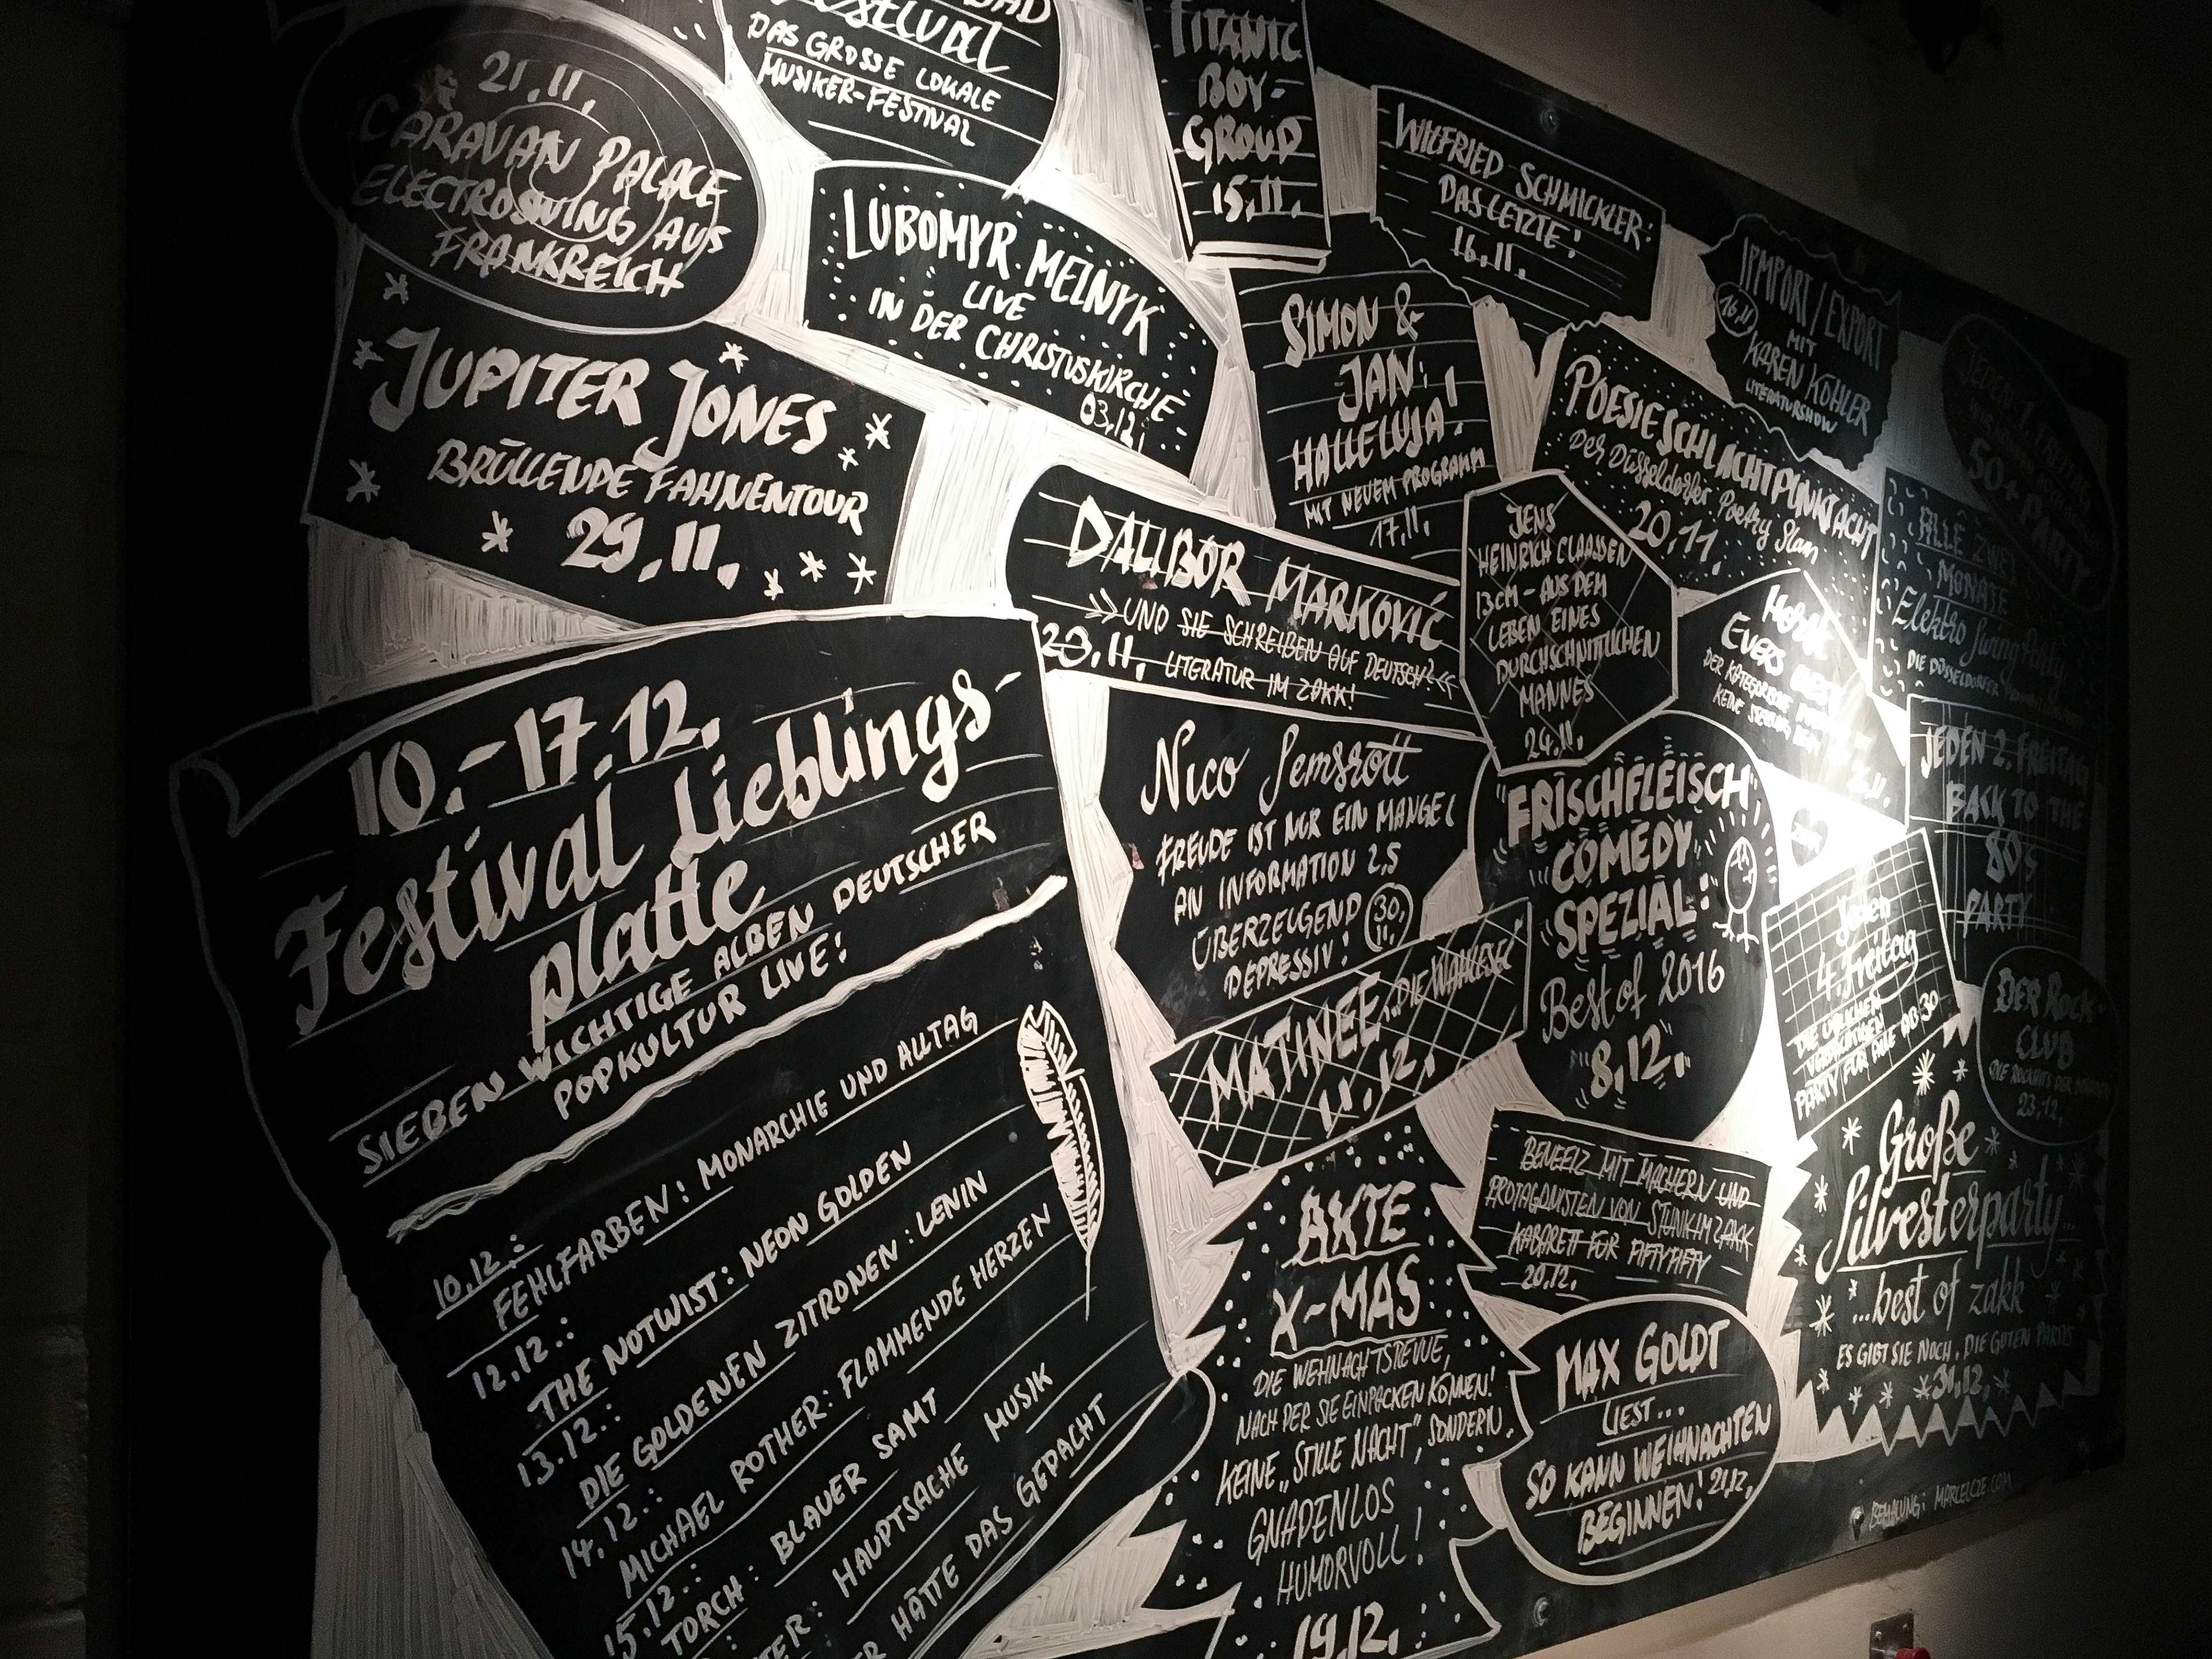 21.11.
CARAVAN PALACE
ELECTROSWING AUS
FRANKREICH
Festival
DAS GROSSE LOKALE
MUSIKER-FESTIVAL
TITANIC
BOY-
GROUP
15.11.
WILFRIED SCHMICKLER:
DAS LETZTE!
16.11.
IPMPORT/EXPORT
16.11
MIT
KAREN KÖHLER
LITERATURSHOW
JEDEN 1. FREITAG
50+ PARTY
JUPITER JONES
BRÜLLENDE FAHNENTOUR
29.11.
LUBOMYR MELNYK
LIVE
IN DER CHRISTUSKIRCHE
03.12.
SIMON &
JAN
HALLELUJA!
MIT NEUEM PROGRAMM
17.11.
POESIESCHLACHTPUNKTACHT
Der Düsseldorfer Poetry Slam
20.11.
ALLE ZWEI
MONATE
Elektro Swing Party
DIE DÜSSELDORFER
DALIBOR MARKOVIĆ
»UND SIE SCHREIBEN AUF DEUTSCH?«
23.11. LITERATUR IM ZAKK!
JENS
HEINRICH CLAASSEN
13CM - AUS DEM
LEBEN EINES
DURCHSCHNITTLICHEN
MANNES
24.11.
EVERS
KEINE
JEDEN 2. FREITAG
BACK TO THE
80's
PARTY
10.-17.12.
Festival Lieblings-
platte
SIEBEN WICHTIGE ALBEN DEUTSCHER
POPKULTUR LIVE:
10.12.:
FEHLFARBEN: MONARCHIE UND ALLTAG
12.12.:
THE NOTWIST: NEON GOLDEN
13.12.:
DIE GOLDENEN ZITRONEN: LENIN
14.12.:
MICHAEL ROTHER: FLAMMENDE HERZEN
15.12.:
TORCH: BLAUER SAMT
TER: HAUPTSACHE MUSIK
ER HÄTTE DAS GEDACHT
Nico Semsrott
FREUDE IST NUR EIN MANGEL
AN INFORMATION 2,5
ÜBERZEUGEND
DEPRESSIV!
30.11.
"FRISCHFLEISCH"
COMEDY
SPEZIAL:
Best of 2016
8.12.
MATINEE...DIE WAHLESE
11.12.
Jeden
4. Freitag
DIE ÜBLICHEN
VERDÄCHTIGEN
PARTY FÜR ALLE AB 30
DER ROCK-
CLUB
23.12.
AKTE
X-MAS
DIE WEHNACHTSREVUE,
NACH DER SIE EINPACKEN KÖNNEN!
KEINE „STILLE NACHT", SONDERN
GNADENLOS
HUMORVOLL!
19.12.
BENEFIZ MIT MACHERN UND
PROTAGONISTEN VON STUNK IM ZAKK
KABARETT FÜR FIFTYFIFTY
20.12.
MAX GOLDT
LIEST...
SO KANN WEIHNACHTEN
BEGINNEN! 21.12.
Große
Silvesterparty...
...best of zakk
ES GIBT SIE NOCH, DIE GUTEN PARTIS
31.12.
BEMALUNG: MARCELCZE.COM